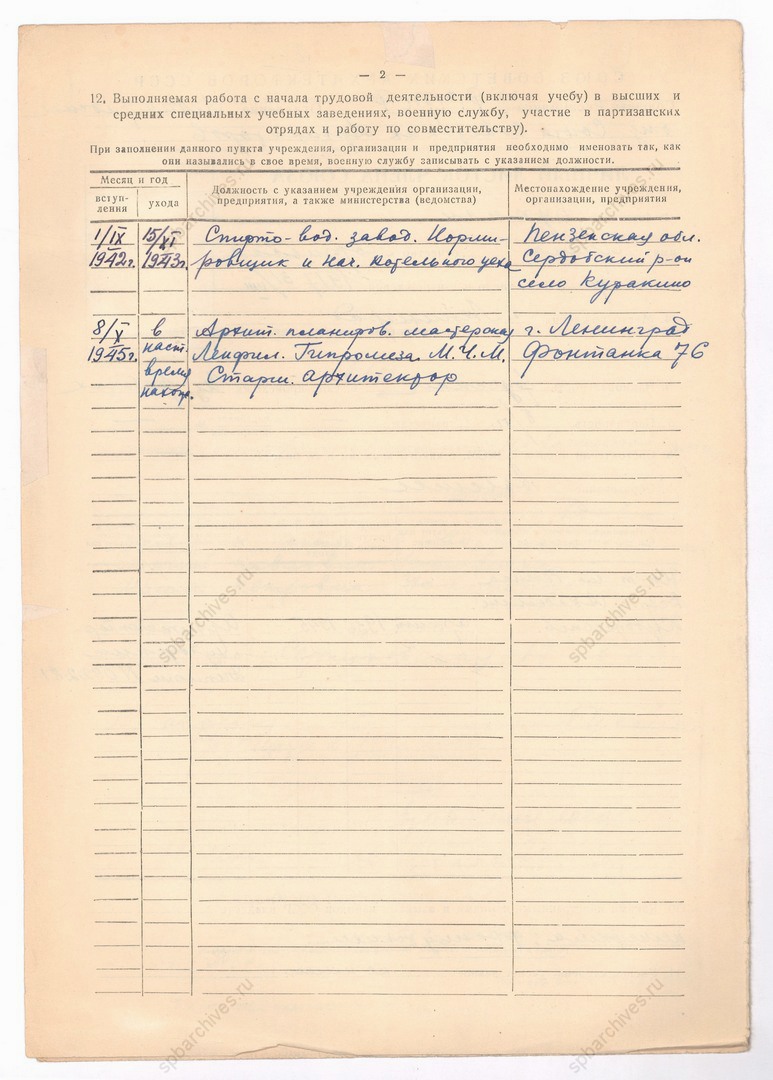 — 2 —
12. Выполняемая работа с начала трудовой деятельности (включая учебу) в высших и
средних специальных учебных заведениях, военную службу, участие в партизанских
отрядах и работу по совместительству).
При заполнении данного пункта учреждения, организации и предприятия необходимо именовать так, как
они назывались в свое время, военную службу записывать с указанием должности.
Месяц и год
вступ-
ления
ухода
Должность с указанием учреждения организации,
предприятия, а также министерства (ведомства)
Местонахождение учреждения,
организации, предприятия
1/IX 15/XI Спирто-вод. завод. Норми- Пензенская обл.
1942г. 1943г. ровщик и нач. котельного цеха Сердобский р-он
село Куракино
8/X в Архит. планиров. мастерская г. Ленинград
1945г. наст. Ленфил. Гипромеза. М.Ч.М. Фонтанка 76
время Старш. архитектор
spbarchives.ru
spbarchives.ru
spbarchives.ru
spbarchives.ru
spbarchives.ru
spbarchives.ru